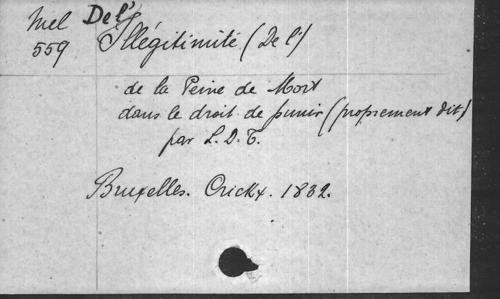 Mel De l'
559 Illégitimité (De l')
de la Peine de Mort
dans le droit de punir (proprement dit)
par L. D. T.
Bruxelles. Crickx. 1832.